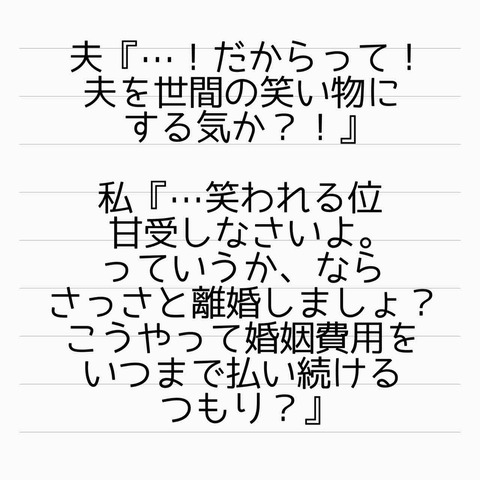 夫『…！だからって！
夫を世間の笑い物に
する気か？！』
私『…笑われる位
甘受しなさいよ。
っていうか、なら
さっさと離婚しましょ？
こうやって婚姻費用を
いつまで払い続ける
つもり？』